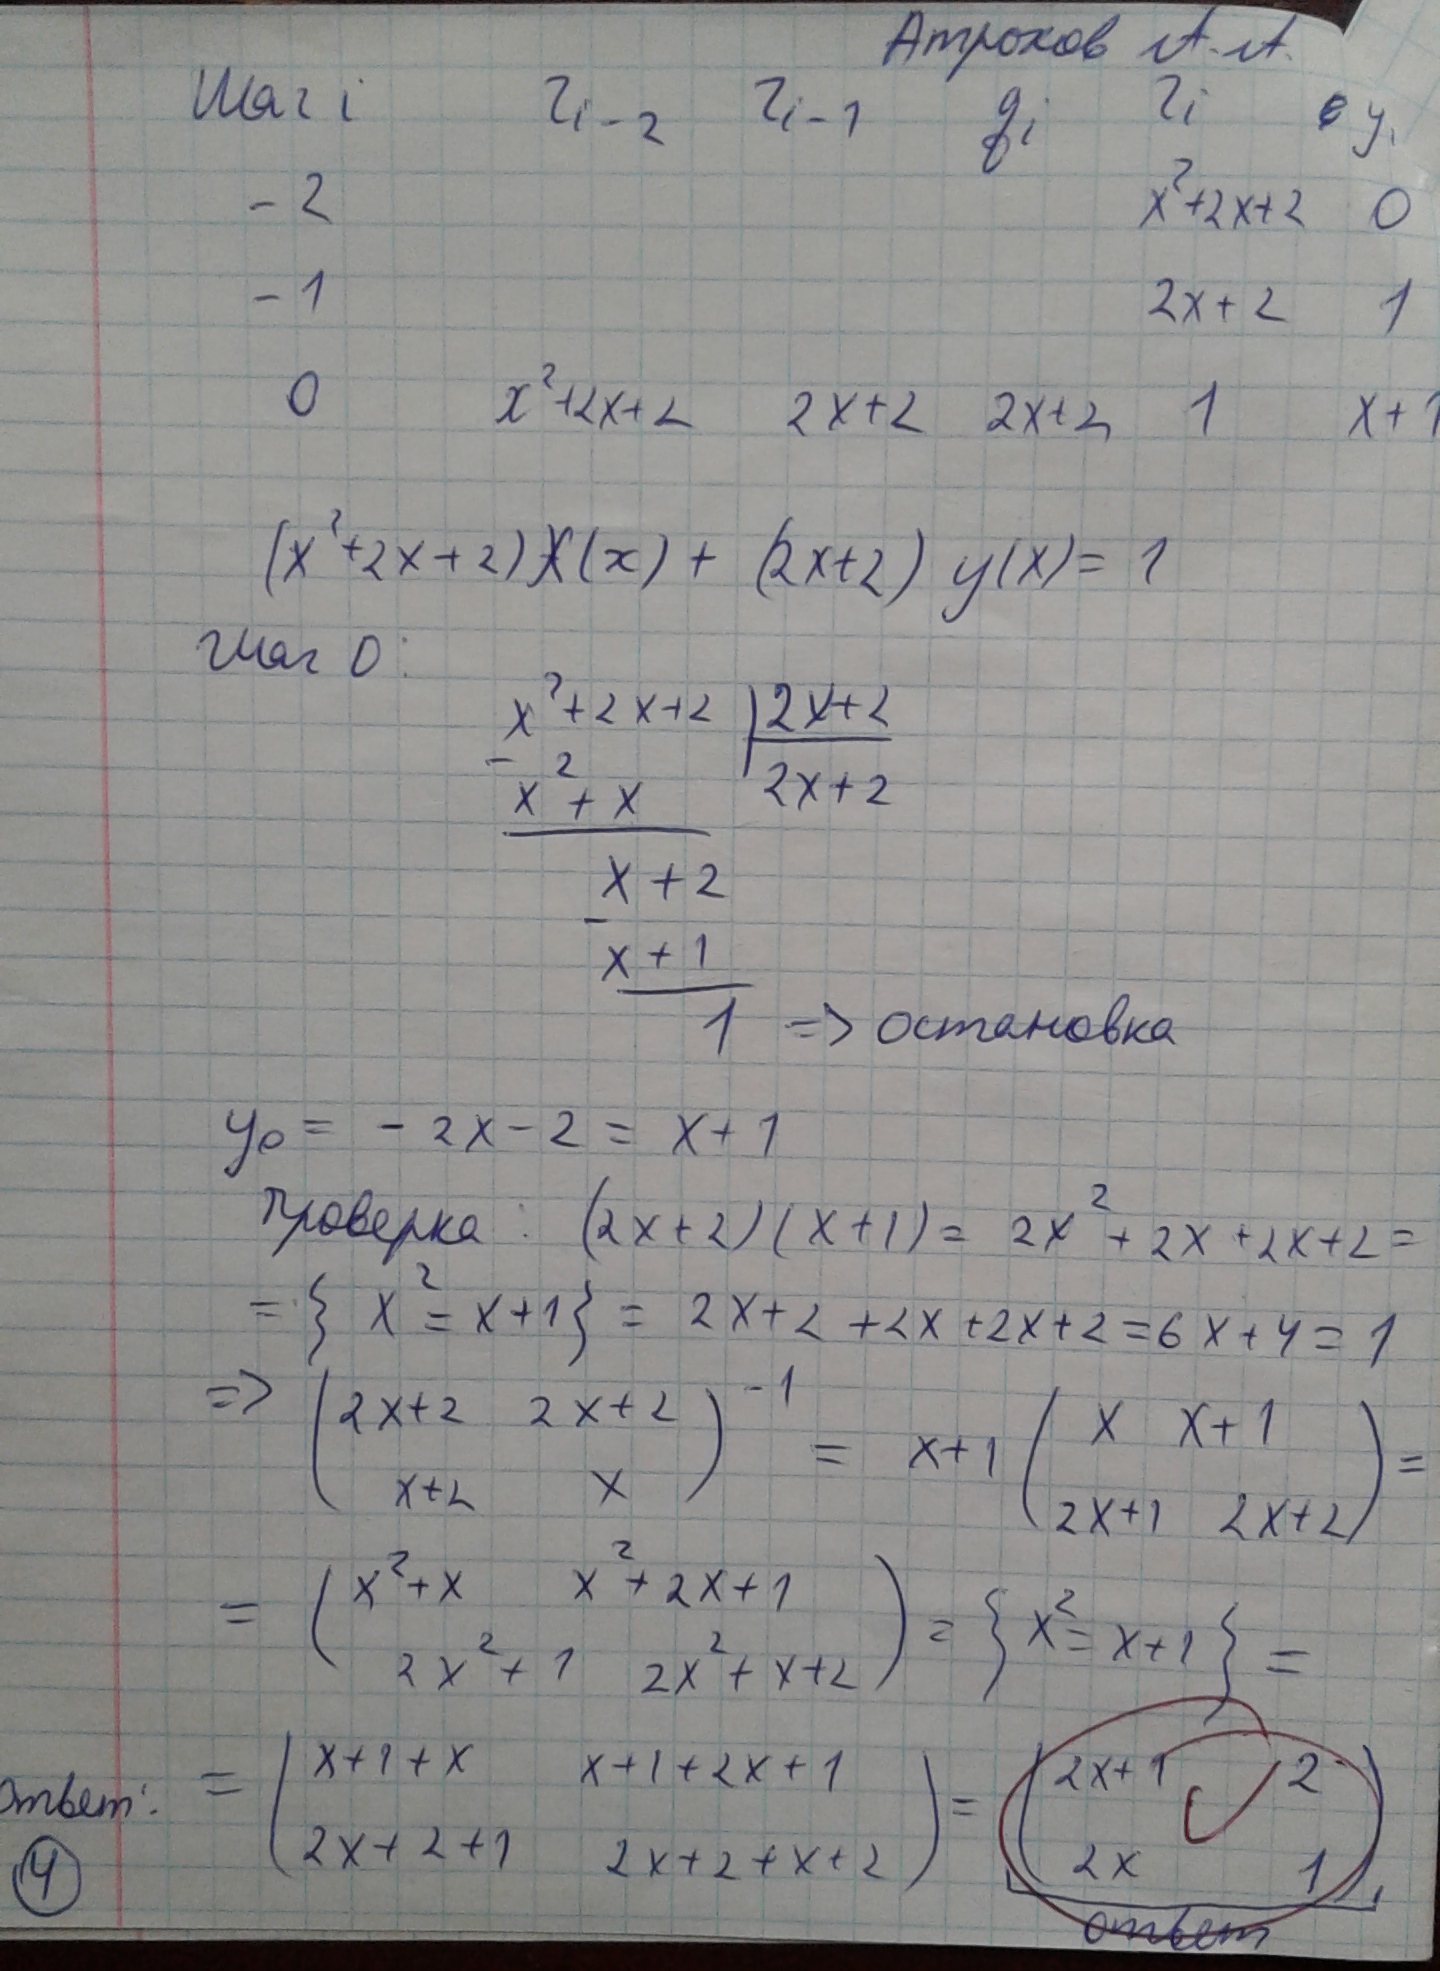 Атрохов А.А.
Шаг i r_{i-2} r_{i-1} q_i r_i y_i
-2 x²+2x+2 0
-1 2x+2 1
0 x²+2x+2 2x+2 2x+2 1 x+1
(x²+2x+2)X(x) + (2x+2) y(x) = 1
Шаг 0:
x²+2x+2 | 2x+2
- x²+x 2x+2
x+2
- x+1
1 => остановка
y₀ = -2x-2 = x+1
Проверка: (2x+2)(x+1) = 2x²+2x+2x+2 =
= { x² = x+1 } = 2x+2+2x+2x+2 = 6x+4 = 1
=> ( 2x+2 2x+2 )⁻¹ = x+1 ( x x+1 ) =
( x+2 x ) ( 2x+1 2x+2 )
= ( x²+x x²+2x+1 ) = { x² = x+1 } =
( 2x²+1 2x²+x+2 )
= ( x+1+x x+1+2x+1 ) = ( 2x+1 2 )
Ответ: ( 2x+2+1 2x+2+x+2 ) ( 2x 1 )
4
ответ